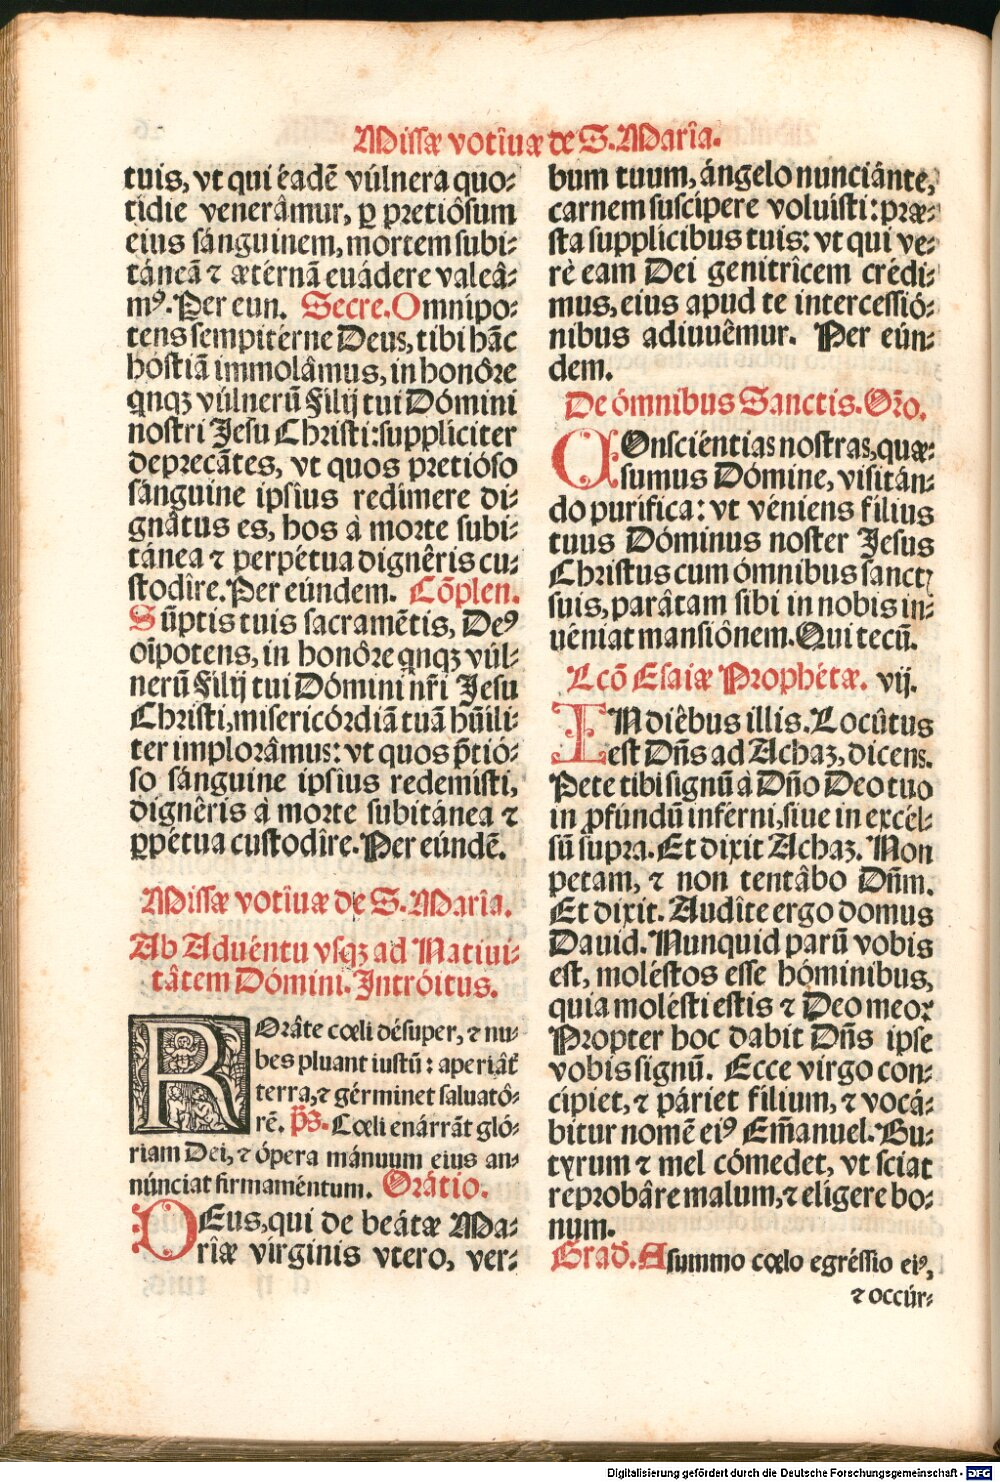 Missæ votîuæ de S. Marîa.
tuis, vt qui éadē vúlnera quo-
tîdie venerâmur, ꝑ pretiôsum
eius sánguinem, mortem subi-
táneā ⁊ ætérnā euádere valeâ-
mꝰ. Per eun. Secre. Omnipo-
tens sempitérne Deus, tibi hāc
hóstiā immolâmus, in honôre
qnqꝫ vúlnerū Filij tui Dómini
nostri Jesu Christi: supplíciter
deprecātes, vt quos pretióso
sánguine ipsîus redímere di-
gnâtus es, hos à morte subi-
tánea ⁊ perpétua dignêris cu-
stodîre. Per eúndem. Cōplen.
Sūptis tuis sacramētis, Deꝰ
oīpotens, in honôre qnqꝫ vúl-
nerū Filij tui Dómini nr̄i Jesu
Christi, misericórdiā tuā hūili-
ter implorâmus: vt quos p̄tió-
so sánguine ipsîus redemisti,
dignêris à morte subitánea ⁊
ꝑpétua custodîre. Per eúndē.
Missæ votîuæ de S. Marîa.
Ab Aduéntu vsqꝫ ad Natiui-
tâtem Dómini. Intróitus.
ROrâte cœli désuper, ⁊ nu-
bes pluant iustū: aperiāt
terra, ⁊ gérminet saluatô-
rē. p̄s. Cœli enárrāt gló-
riam Dei, ⁊ ópera mánuum eius an-
núnciat firmaméntum. Orátio.
DEus, qui de beátæ Ma-
rîæ vírginis vtero, ver-
bum tuum, ángelo nunciánte,
carnem suscípere voluísti: præ-
sta supplícibus tuis: vt qui ve-
rè eam Dei genitrîcem crédi-
mus, eius apud te intercessió-
nibus adiuuêmur. Per eún-
dem.
De ómnibus Sanctis. Orō.
COnsciéntias nostras, quæ-
sumus Dómine, visitán-
do purífica: vt véniens filius
tuus Dóminus noster Jesus
Christus cum ómnibus sanctꝭ
suis, parâtam sibi in nobis in-
uéniat mansiônem. Qui tecū.
Lcō Esaiæ Prophétæ. vij.
IN diêbus illis. Locûtus
est Dn̄s ad Achaz, dicens.
Pete tibi signū à Dn̄o Deo tuo
in ꝓfundū inferni, siue in excél-
sū supra. Et dixit Achaz. Non
petam, ⁊ non tentâbo Dn̄m.
Et dixit. Audîte ergo domus
Dauid. Nunquid parū vobis
est, moléstos esse homínibus,
quia molésti estis ⁊ Deo meo?
Propter hoc dabit Dn̄s ipse
vobis signū. Ecce virgo con-
cípiet, ⁊ páriet filium, ⁊ vocá-
bitur nomē eiꝰ Em̄anuel. Bu-
tyrum ⁊ mel cómedet, vt sciat
reprobâre malum, ⁊ elígere bo-
num.
Grad. A summo cœlo egréssio eiꝰ,
⁊ occúr-
Digitalisierung gefördert durch die Deutsche Forschungsgemeinschaft - DFG